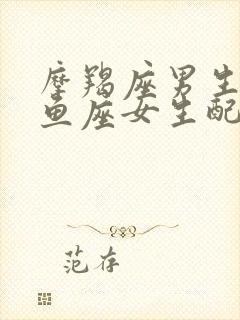 摩羯座男生
鱼座女生配
范存